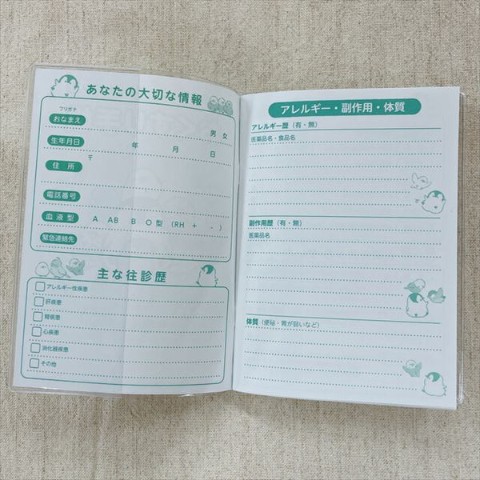 あなたの大切な情報
フリガナ
おなまえ
男 女
生年月日 年 月 日
〒
住所
電話番号
血液型 A AB B O 型 (RH + -)
緊急連絡先
主な往診歴
アレルギー性疾患
肝疾患
腎疾患
心疾患
消化器疾患
その他
アレルギー・副作用・体質
アレルギー歴 (有・無)
医薬品名・食品名
副作用歴 (有・無)
医薬品名
体質 (便秘・胃が弱いなど)